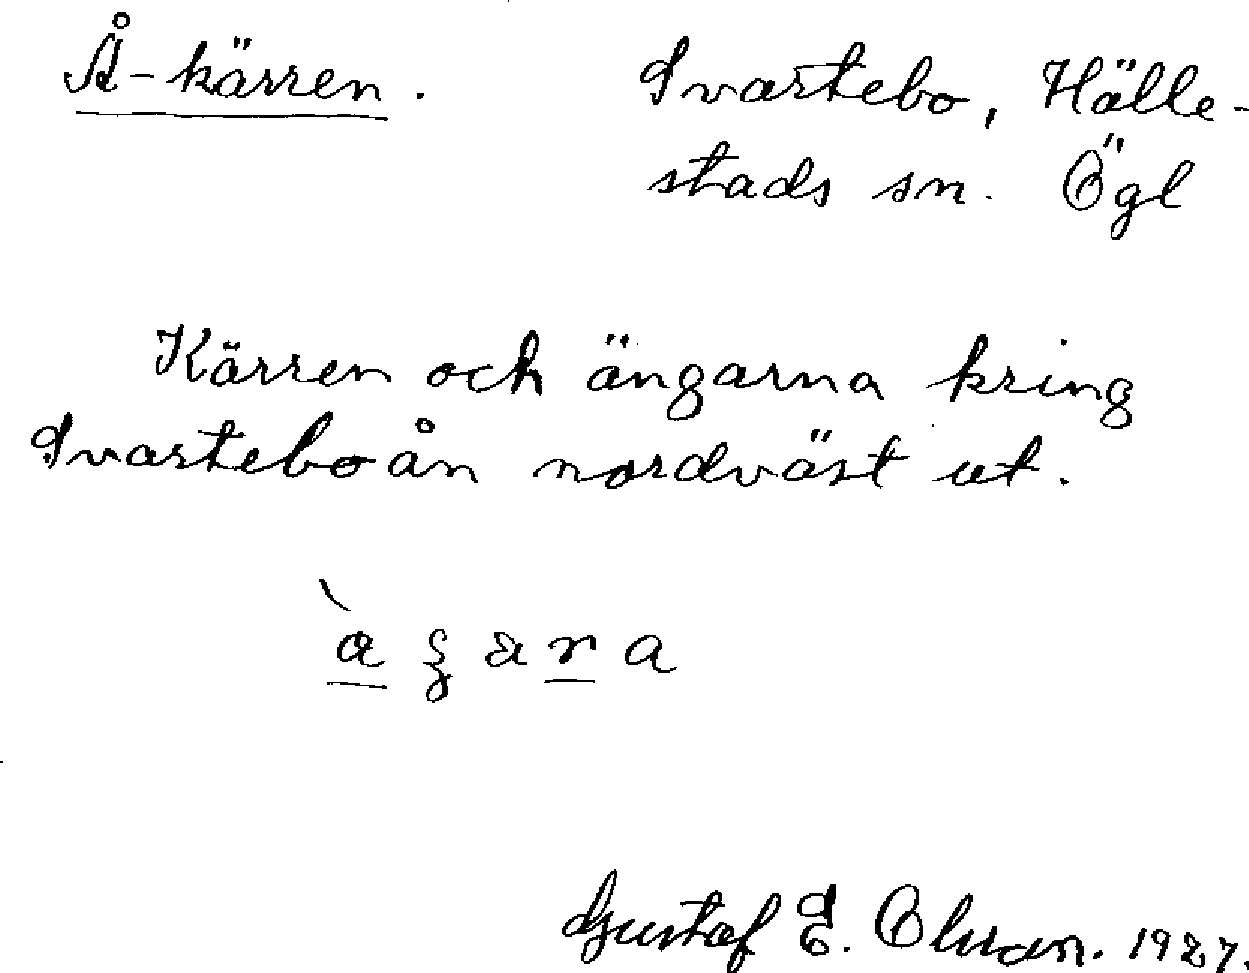 Å-kärren.
Svartebo, Hälle-
stads sn. Ögl
Kärren och ängarna kring
Svarteboån nordväst ut.
Gustaf E. Olsson. 1927.